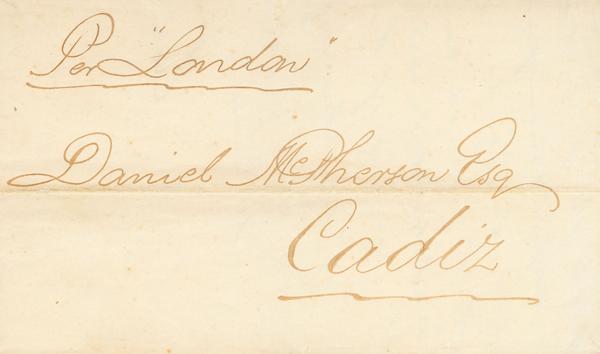 Per "London"
Daniel McPherson Esq
Cadiz